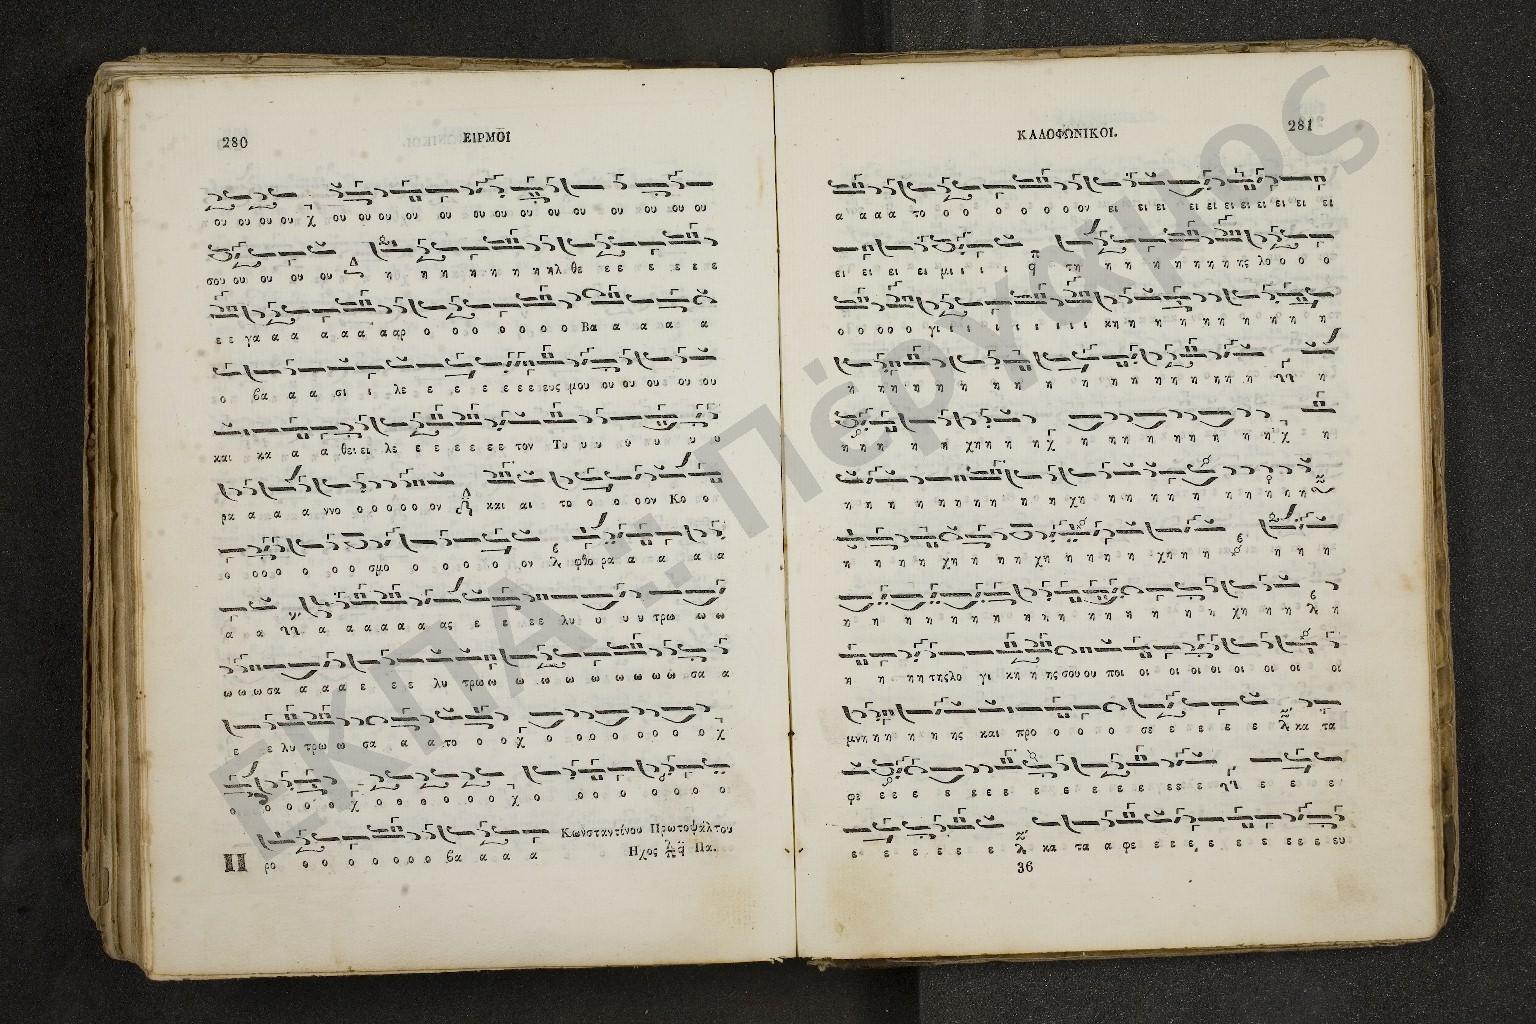 280
ΕΙΡΜΟΙ
ου ου ου ου χ ου ου ου ου ου ου ου ου ου ου ου ου ου ου
σου ου ου ου ου η η η η η η η ηλ θε ε ε ε ε ε ε
ε ε γα α α α α α α α αρ ο ο ο ο ο ο ο ο Βα α α α α
ο βα α α σι ι λε ε ε ε ε ε ε ε ε ευς μου ου ου ου ου ου
και κα α α θει ει λε ε ε ε ε ε ε τον Τυ υ υ υ υ υ υ
ρα α α α ννο ο ο ο ο ο ον και αι το ο ο ο ον Κο ο
ο ο ο ο ο ο ο σμο ο ο ο ο ο ον φθο ρα α α α α α
α α α α α α α α α ας ε ε ε ε λυ υ υ υ τρω ω ω
ω ω ω σα α α α ε ε ε λυ τρω ω ω ω ω ω ω ω ω ω σα α
ε ε λυ τρω ω σα α α το ο ο χ ο ο ο ο ο ο ο ο ο χ
ο ο ο ο ο χ ο ο ο ο ο ο ο χ ο ο ο ο ο ο ο ο
Π ρο ο ο ο ο ο ο ο βα α α α
Κωνσταντίνου Πρωτοψάλτου
Ηχος Πα.
ΚΑΛΟΦΩΝΙΚΟΙ.
281
α α α α το ο ο ο ο ο ο ο ον ει ει ει ει ει ει ει ει ει ει ει
ει ει ει ει μι ι ι ι τη η η η η η η η ης λο ο ο ο
ο ο ο ο ο γι ι ι ι ι ι ι ι ι κη η η η η η η η η η
η η η η η η η η η η η η η η η η η η η
η η η η η χη η η η χ η η η η η η η η η χ η
η η η η η η η η η η χη η η η η η η η η η η
η η η η χη η η η χη η η η η χη η η η η η
η η η η η η η η η η η η η η χη η η η
η η η η της λο γι κη η ης σου ου ποι οι οι οι οι οι οι οι οι
μνη η η η η ης και προ ο ο ο ο σε ε ε ε ε ε κα τα
φε ε ε ε ε ε ε ε ε ε ε ε ε ε ε ε ε ε ε ε ε
ε ε ε ε ε ε κα τα α φε ε ε ε ε ε ε ε ε ε ευ
36
ΕΚΠΑ :: Πέργαμος